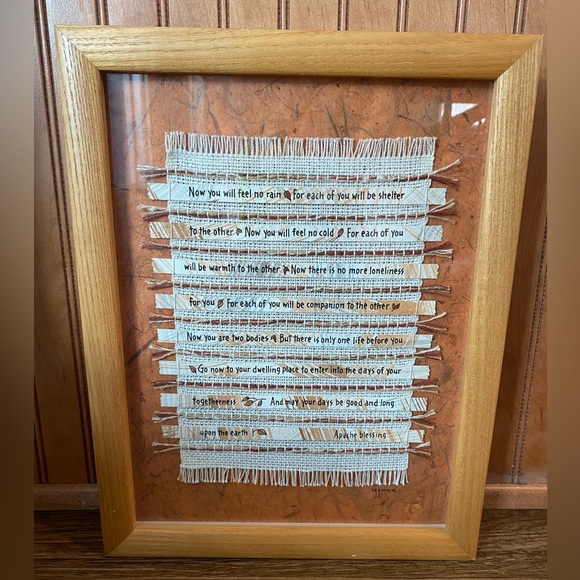 Now you will feel no rain For each of you will be shelter
to the other Now you will feel no cold For each of you
will be warmth to the other Now there is no more loneliness
for you For each of you will be companion to the other
Now you are two bodies But there is only one life before you
Go now to your dwelling place to enter into the days of your
togetherness And may your days be good and long
upon the earth Apache blessing